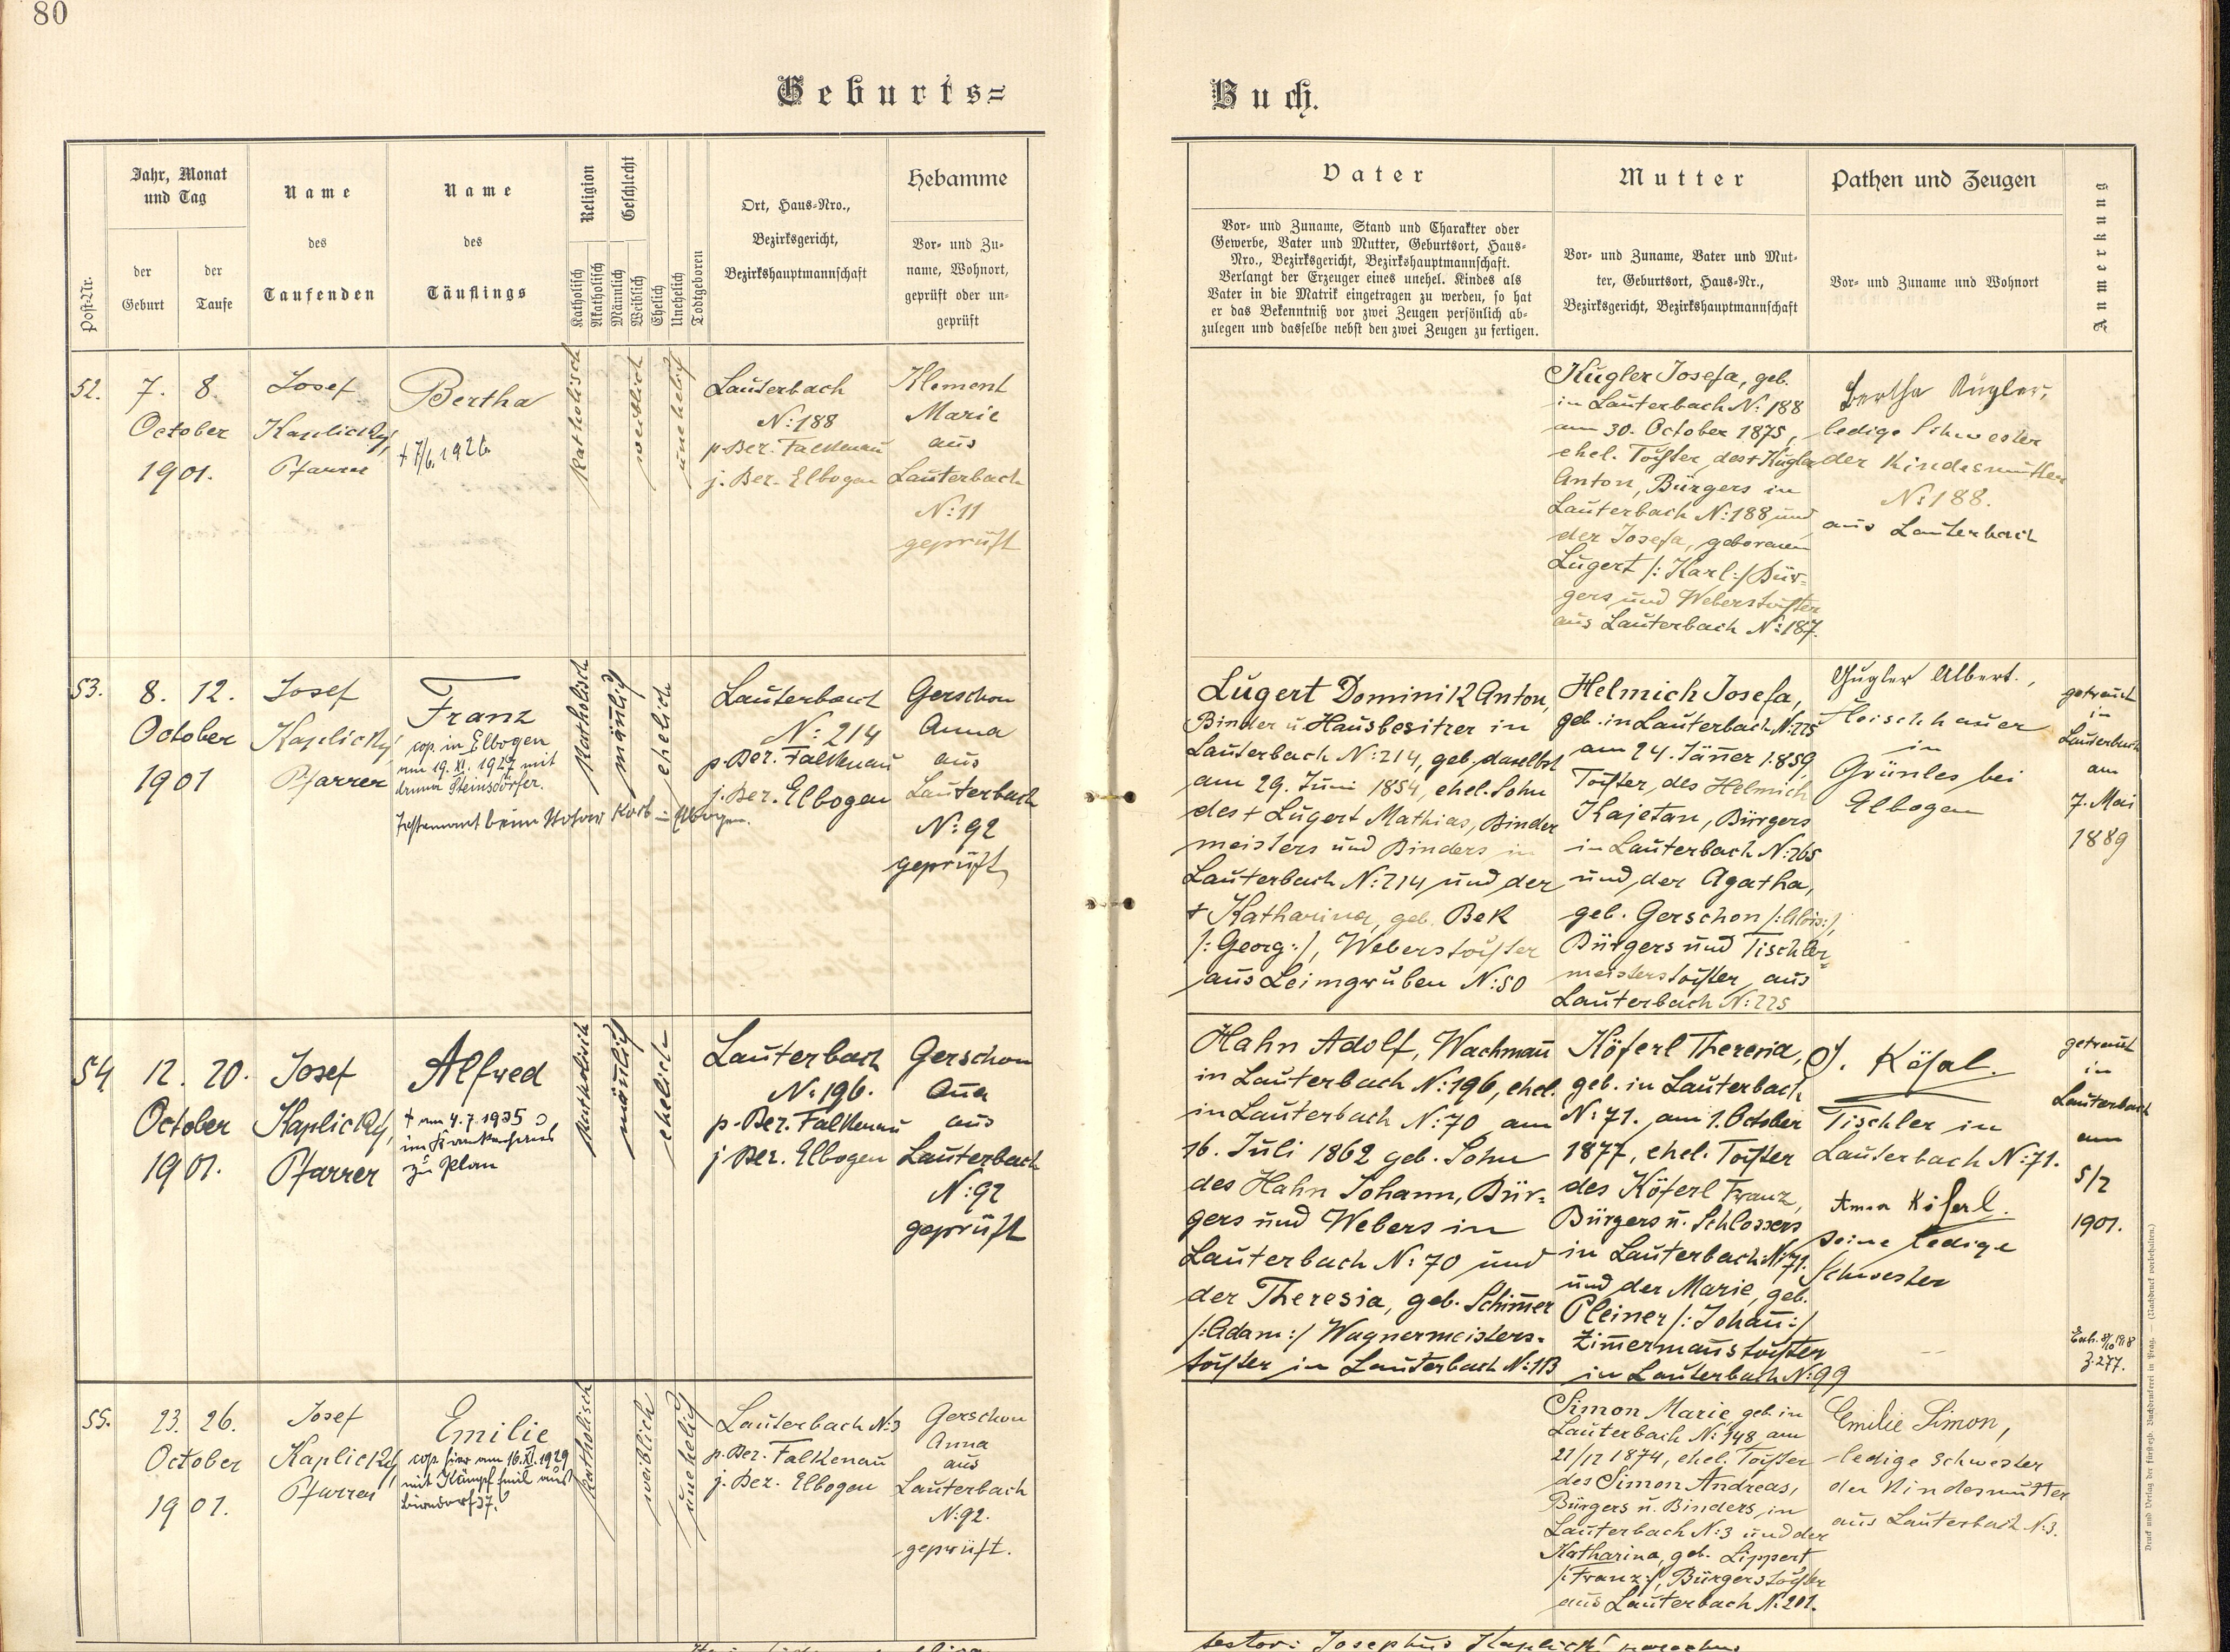 80
Geburts=
Buch.
Post-Nr.
Jahr, Monat
und Tag
der
Geburt
der
Taufe
Name
des
Taufenden
Name
des
Täuflings
Religion
Katholisch
Akatholisch
Geschlecht
Männlich
Weiblich
Ehelich
Unehelich
Todtgeboren
Ort, Haus-Nro.,
Bezirksgericht,
Bezirkshauptmannschaft
Hebamme
Vor- und Zu-
name, Wohnort,
geprüft oder un-
geprüft
Vater
Vor- und Zuname, Stand und Charakter oder
Gewerbe, Vater und Mutter, Geburtsort, Haus-
Nro., Bezirksgericht, Bezirkshauptmannschaft.
Verlangt der Erzeuger eines unehel. Kindes als
Vater in die Matrik eingetragen zu werden, so hat
er das Bekenntniß vor zwei Zeugen persönlich ab-
zulegen und dasselbe nebst den zwei Zeugen zu fertigen.
Mutter
Vor- und Zuname, Vater und Mut-
ter, Geburtsort, Haus-Nr.,
Bezirksgericht, Bezirkshauptmannschaft
Pathen und Zeugen
Vor- und Zuname und Wohnort
Anmerkung
52.
7. 8.
October
1901.
Josef
Kaplicky,
Pfarrer
Bertha
† 7/6. 1926.
Katholisch
weiblich
unehelich
Lauterbach
N: 188
p. Bez. Falkenau
j. Bez. Elbogen
Klement
Marie
aus
Lauterbach
N: 11
geprüft
Kugler Josefa, geb.
in Lauterbach N: 188
am 30. October 1875,
ehel. Tochter des † Kugler
Anton, Bürgers in
Lauterbach N: 188 und
der Josefa, geborenen
Lugert /: Karl :/ Bür-
gers und Weberstochter
aus Lauterbach N: 187.
Bertha Kugler,
ledige Schwester
der Kindesmutter
N: 188.
aus Lauterbach
53.
8. 12.
October
1901
Josef
Kaplicky
Pfarrer
Franz
cop. in Elbogen
am 19. XI. 1927 mit
Steinsdörfer.
Testament beim Notar Korb in Elbogen.
Katholisch
männlich
ehelich
Lauterbach
N: 214
p. Bez. Falkenau
j. Bez. Elbogen
Gerschon
Anna
aus
Lauterbach
N: 92
geprüft
Lugert Dominik Anton,
Binder u. Hausbesitzer in
Lauterbach N: 214, geb. daselbst
am 29. Juni 1854, ehel. Sohn
des † Lugert Mathias, Binder
meisters und Binders in
Lauterbach N: 214 und der
† Katharina, geb. Bek
/: Georg :/, Weberstochter
aus Leimgruben N: 50
Helmich Josefa,
geb. in Lauterbach N: 225
am 24. Jäner 1859,
Tochter des Helmich
Kajetan, Bürgers
in Lauterbach N: 265
und der Agatha,
geb. Gerschon /: Alois :/,
Bürgers und Tischler-
meisterstochter aus
Lauterbach N: 225
Gugler Albert.,
Fleischhauer
in
Grünles bei
Elbogen
getraut
in
Lauterbach
am
7. Mai
1889
54
12. 20.
October
1901.
Josef
Kaplicky,
Pfarrer
Alfred
† am 4. 7. 1935
im Krankenhaus
zu Plan
Katholisch
männlich
ehelich
Lauterbach
N: 196.
p. Bez. Falkenau
j. Bez. Elbogen
Gerschon
Anna
aus
Lauterbach
N: 92
geprüft
Hahn Adolf, Wachmann
in Lauterbach N: 196, ehel.
in Lauterbach N: 70 am
16. Juli 1862 geb. Sohn
des Hahn Johann, Bür-
gers und Webers in
Lauterbach N: 70 und
der Theresia, geb. Schimmer
/: Adam :/ Wagnermeisters-
tochter in Lauterbach N: 113
Köferl Theresia,
geb. in Lauterbach
N: 71. am 1. October
1877, ehel. Tochter
des Köferl Franz,
Bürgers u. Schlossers
in Lauterbach N: 71.
und der Marie, geb.
Pleiner /: Johann :/
Zimmermannstochter
in Lauterbach N: 99
J. Köferl.
Tischler in
Lauterbach N: 71.
Anna Köferl.
seine ledige
Schwester
getraut
in
Lauterbach
am
5/2
1901.
Z. 277.
55.
23. 26.
October
1901.
Josef
Kaplicky,
Pfarrer
Emilie
cop. hier am 16. XI. 1929
mit Kämpf Emil aus
Birndorf 37.
Katholisch
weiblich
unehelich
Lauterbach N: 3
p. Bez. Falkenau
j. Bez. Elbogen
Gerschon
Anna
aus
Lauterbach
N: 92.
geprüft.
Simon Marie, geb. in
Lauterbach N: 148 am
21/12 1874, ehel. Tochter
des Simon Andreas,
Bürgers u. Binders, in
Lauterbach N: 3 und der
Katharina, geb. Lippert
/: Franz :/, Bürgerstochter
aus Lauterbach N: 201.
Emilie Simon,
ledige Schwester
der Kindesmutter
aus Lauterbach N: 3.
Josephus Kaplický parochus
Druck und Verlag der fürsterzb. Buchdruckerei in Prag. — (Nachdruck vorbehalten.)